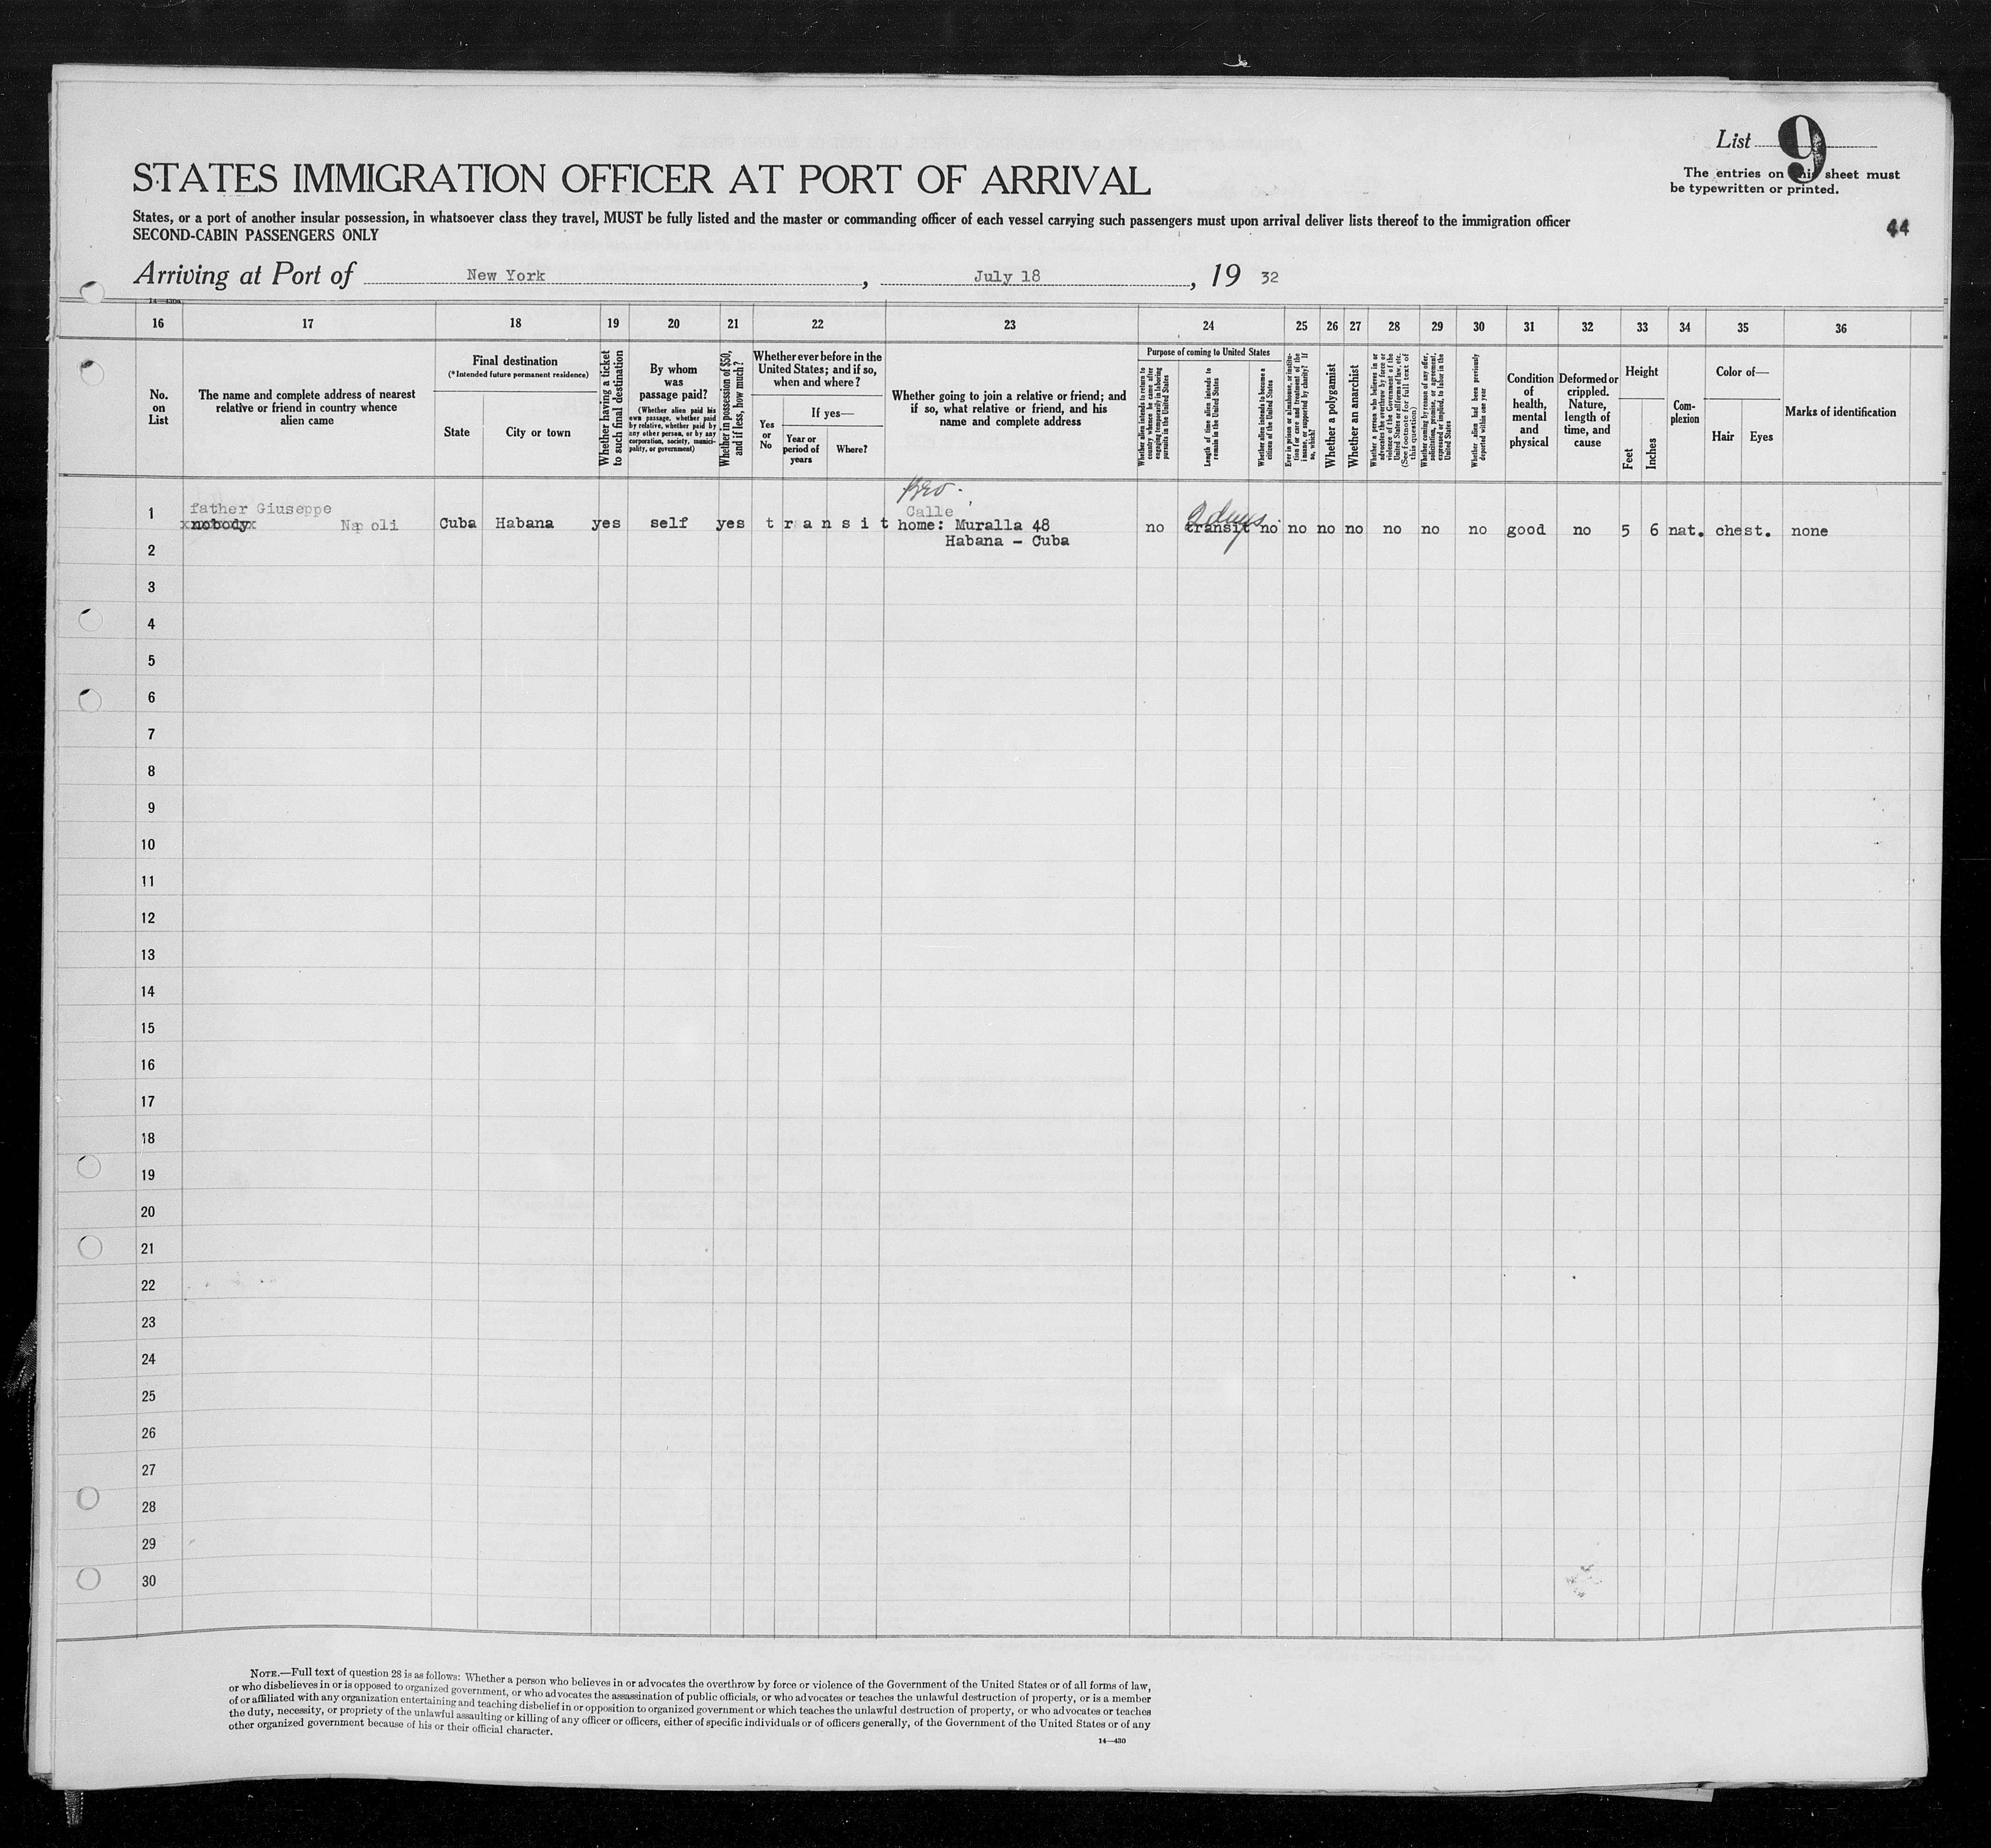 List 9
The entries on this sheet must
be typewritten or printed.
STATES IMMIGRATION OFFICER AT PORT OF ARRIVAL
States, or a port of another insular possession, in whatsoever class they travel, MUST be fully listed and the master or commanding officer of each vessel carrying such passengers must upon arrival deliver lists thereof to the immigration officer
SECOND-CABIN PASSENGERS ONLY
44
Arriving at Port of New York, July 18, 19 32
14—430a
16 17 18 19 20 21 22 23 24 25 26 27 28 29 30 31 32 33 34 35 36
No.
on
List
The name and complete address of nearest
relative or friend in country whence
alien came
Final destination
(*Intended future permanent residence)
State
City or town
Whether having a ticket
to such final destination
By whom
was
passage paid?
(Whether alien paid his
own passage, whether paid
by relative, whether paid by
any other person, or by any
corporation, society, munici-
pality, or government)
Whether in possession of $50,
and if less, how much?
Whether ever before in the
United States; and if so,
when and where?
Yes
or
No
If yes—
Year or
period of
years
Where?
Whether going to join a relative or friend; and
if so, what relative or friend, and his
name and complete address
Purpose of coming to United States
Whether alien intends to return to
country whence he came after
engaging temporarily in laboring
pursuits in the United States
Length of time alien intends to
remain in the United States
Whether alien intends to become a
citizen of the United States
Ever in prison or almshouse, or institu-
tion for care and treatment of the
insane, or supported by charity? If
so, which?
Whether a polygamist
Whether an anarchist
Whether a person who believes in or
advocates the overthrow by force or
violence of the Government of the
United States or all forms of law, etc.
(See footnote for full text of
this question)
Whether coming by reason of any offer,
solicitation, promise, or agreement,
expressed or implied, to labor in the
United States
Whether alien had been previously
deported within one year
Condition
of
health,
mental
and
physical
Deformed or
crippled.
Nature,
length of
time, and
cause
Height
Feet
Inches
Com-
plexion
Color of—
Hair
Eyes
Marks of identification
Bro.
father Giuseppe
Calle
1 xnobodyx Napoli Cuba Habana yes self yes transit home: Muralla 48 no transit 2 days no no no no no no no good no 5 6 nat. chest. none
Habana - Cuba
2
3
4
5
6
7
8
9
10
11
12
13
14
15
16
17
18
19
20
21
22
23
24
25
26
27
28
29
30
NOTE.—Full text of question 28 is as follows: Whether a person who believes in or advocates the overthrow by force or violence of the Government of the United States or of all forms of law,
or who disbelieves in or is opposed to organized government, or who advocates the assassination of public officials, or who advocates or teaches the unlawful destruction of property, or is a member
of or affiliated with any organization entertaining and teaching disbelief in or opposition to organized government or which teaches the unlawful destruction of property, or who advocates or teaches
the duty, necessity, or propriety of the unlawful assaulting or killing of any officer or officers, either of specific individuals or of officers generally, of the Government of the United States or of any
other organized government because of his or their official character.
14—430